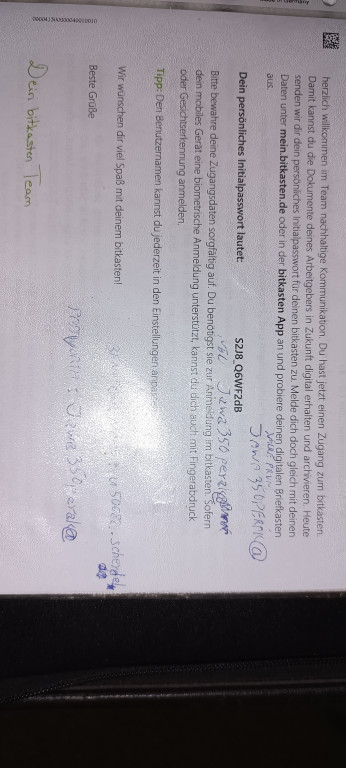 00004150000040010010
Germany
herzlich willkommen im Team nachhaltige Kommunikation. Du hast jetzt einen Zugang zum bitkasten.
Damit kannst du die Dokumente deines Arbeitgebers in Zukunft digital erhalten und archivieren. Heute
senden wir dir dein persönliches Initialpasswort für deinen bitkasten zu. Melde dich doch gleich mit deinen
Daten unter mein.bitkasten.de oder in der bitkasten App an und probiere deinen digitalen Briefkasten
aus.
Dein persönliches Initialpasswort lautet: S2J8_Q6WF2dB
Jawa350PERAK@
Jawa350perak@
Bitte bewahre deine Zugangsdaten sorgfältig auf. Du benötigst sie zur Anmeldung im bitkasten. Sofern
dein mobiles Gerät eine biometrische Anmeldung unterstützt, kannst du dich auch mit Fingerabdruck
oder Gesichtserkennung anmelden.
Tipp: Den Benutzernamen kannst du jederzeit in den Einstellungen anpassen.
Wir wünschen dir viel Spaß mit deinem bitkasten!
Beste Grüße
Jawa350perak@
Dein bitkasten Team